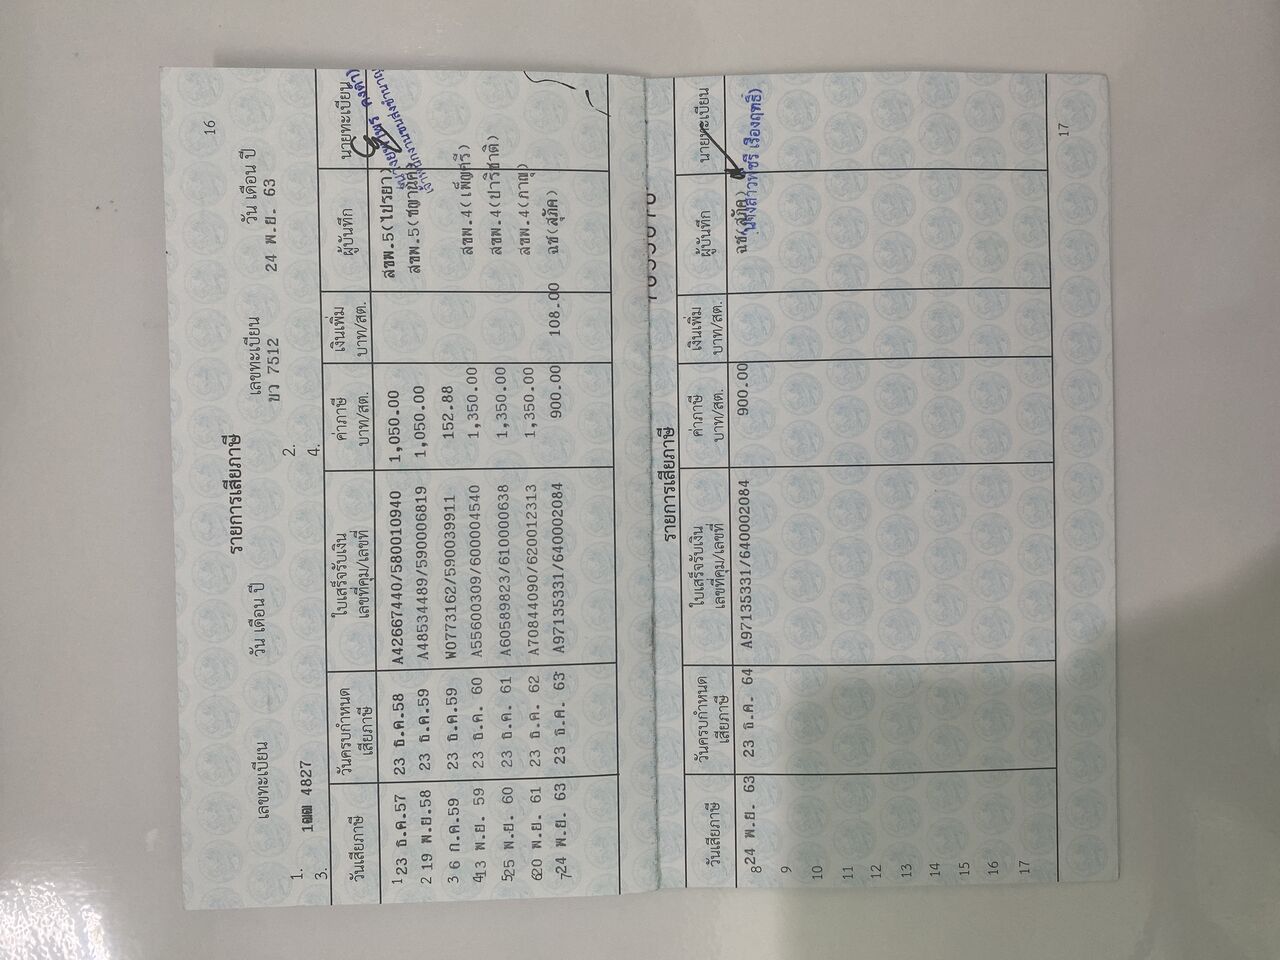 16
รายการเสียภาษี
เลขทะเบียน วัน เดือน ปี เลขทะเบียน วัน เดือน ปี
1. 2. ขว 7512 24 พ.ย. 63
1ฒฒ 4827
3. 4.
วันเสียภาษี วันครบกำหนด ใบเสร็จรับเงิน ค่าภาษี เงินเพิ่ม ผู้บันทึก นายทะเบียน
เสียภาษี เลขที่คุม/เลขที่ บาท/สต. บาท/สต.
1 23 ธ.ค.57 23 ธ.ค.58 A42667440/580010940 1,050.00 สขพ.5(ไปรยา)
2 19 พ.ย.58 23 ธ.ค.59 A48534489/590006819 1,050.00 สขพ.5(ชญานิศ)
3 6 ก.ค.59 23 ธ.ค.59 W0773162/590039911 152.88
4 13 พ.ย. 59 23 ธ.ค. 60 A55600309/600004540 1,350.00 สขพ.4(เพ็ญศรี)
5 25 พ.ย. 60 23 ธ.ค. 61 A60589823/610000638 1,350.00 สขพ.4(ปาริชาติ)
6 20 พ.ย. 61 23 ธ.ค. 62 A70844090/620012313 1,350.00 สขพ.4(ภาญ)
7 24 พ.ย. 63 23 ธ.ค. 63 A97135331/640002084 900.00 108.00 ฉช(สุภัค)
รายการเสียภาษี
วันเสียภาษี วันครบกำหนด ใบเสร็จรับเงิน ค่าภาษี เงินเพิ่ม ผู้บันทึก นายทะเบียน
เสียภาษี เลขที่คุม/เลขที่ บาท/สต. บาท/สต.
8 24 พ.ย. 63 23 ธ.ค. 64 A97135331/640002084 900.00 ฉช(สุภัค)
(นางสาวพัชรี เรืองฤทธิ์)
9
10
11
12
13
14
15
16
17
17